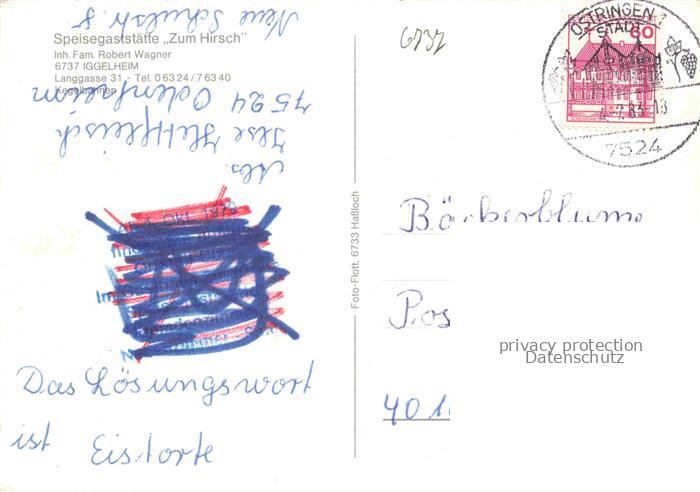 Speisegaststätte „Zum Hirsch"
Inh. Fam. Robert Wagner
6737 IGGELHEIM
Langgasse 31 - Tel. 0 63 24 / 7 63 40
Kegelbahnen
Neue Schulstr. 8
7524 Odenheim
Ilse
Abs.
6737
ÖSTRINGEN
STADT
60
7524
Foto-Flott, 6733 Haßloch
Bäckerblume
Pos
40
privacy protection
Datenschutz
Das Lösungswort
ist Eistorte